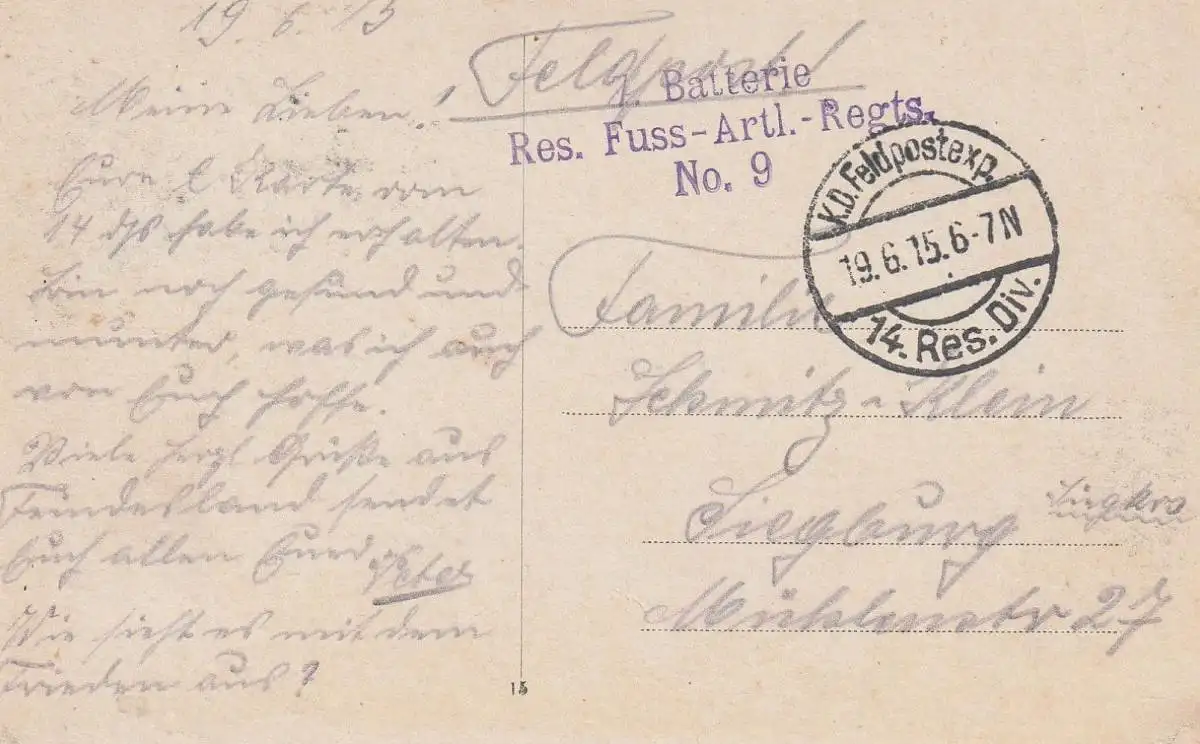 19. 6. 15
Meine Lieben!
Eure l Karte vom
14 ds habe ich erhalten.
Bin noch gesund und
munter, was ich auch
von Euch hoffe.
Viele herzl Grüße aus
Feindesland sendet
Euch allen Euer
Peter
Wie sieht es mit dem
Frieden aus?
Feldpost
Batterie
Res. Fuss-Artl.-Regts.
No. 9
K.D. Feldpostexp.
19.6.15.6-7N
14. Res. Div.
Familie
Schmitz-Klein
Siegburg
Siegkrs
Mühlenstr 27
15